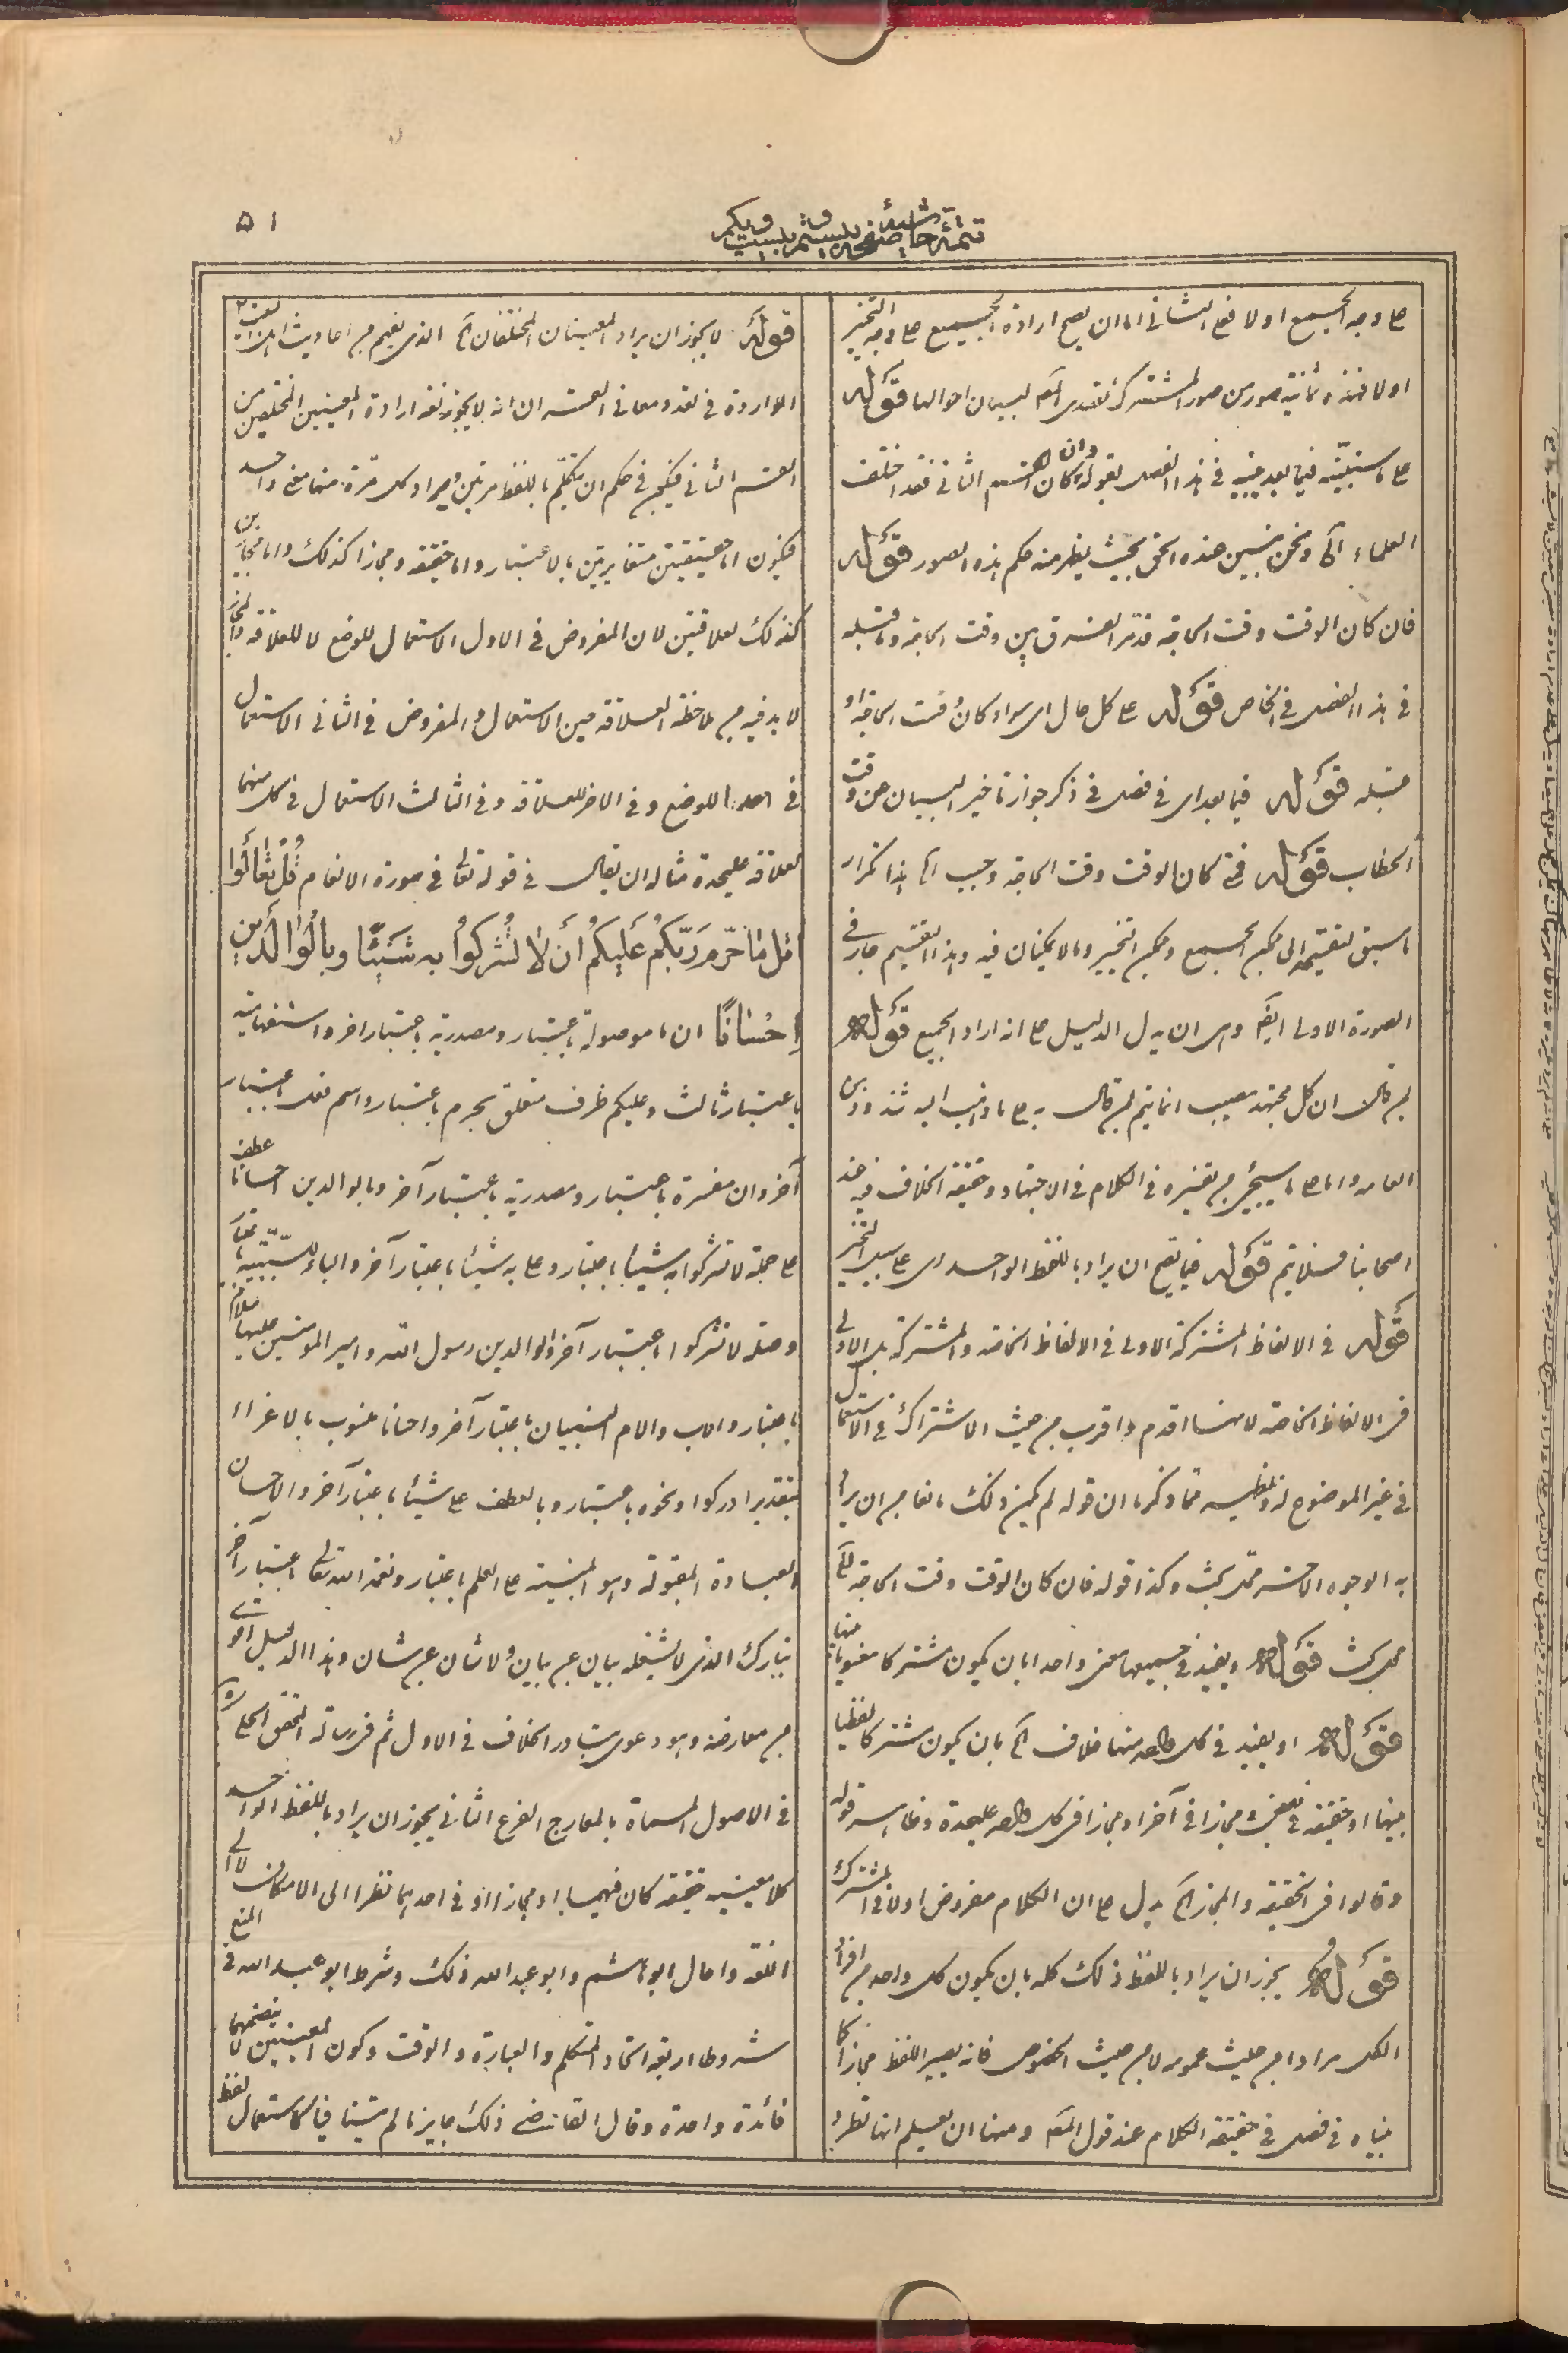 ۵۱
تتمة حاشية صفحه
على وجه الجميع اولا فعلى الثانى اما ان يصح ارادة الجميع على وجه التخيير
اولا فهذه ثمانية صور من صور المشترك تصدى المص لبيان احوالها قوله
على ما سنبينه فيما بعد يبينه فى هذا الفصل بقوله وان كان القسم الثانى فقد اختلف
العلماء الخ ونحن نبين هذه بحيث يظهر منه حكم هذه الصور قوله
فان كان الوقت وقت الحاجة قد مر الفرق بين وقت الحاجة وما قبله
فى هذا الفصل فى الخاص قوله على كل حال اى سواء كان وقت الحاجة او
قبله قوله فيما بعد اى فى فصل فى ذكر جواز تاخير البيان عن وقت
الخطاب قوله فمتى كان الوقت وقت الحاجة وجب الخ هذا تكرار
ما سبق لتقسيمه الى ممكن الجميع وممكن التخيير وما لا يمكنان فيه وهذا التقسيم جار فى
الصورة الاولى ايضا وهى ان يدل الدليل على انه اراد الجميع قوله
من قال ان كل مجتهد مصيب انما يتم لمن قال به على ما ذهب اليه
العامة واما على ما سيجئ من تفسيره فى الكلام فى الاجتهاد وحقيقة الخلاف فيه عند
اصحابنا فلا يتم قوله فيما يصح ان يراد باللفظ الواحد اى على سبيل التخيير
قوله فى الالفاظ المشتركة الاولى فى الالفاظ الخاصة والمشتركة بل الاولى
فى الالفاظ الخاصة لانها اقدم واقرب من حيث الاشتراك فى الاستعمال
فى غير الموضوع له ويظهر مما ذكرنا ان قوله لم يكن ذلك مانعا من ان يراد
به الوجوه الاخر محل بحث وكذا قوله فان كان الوقت وقت الحاجة الخ
محل بحث قوله ويفيد فى جميعها معنى واحدا بان يكون مشتركا معنويا بينها
قوله او يفيد فى كل واحد منها خلاف الخ بان يكون مشتركا لفظيا
بينها او حقيقة فى بعض مجازا فى آخر او مجازا فى كل واحد عليحدة وظاهر قوله
وقالوا فى الحقيقة والمجاز الخ يدل على ان الكلام مفروض اولا فى المشترك
قوله يجوز ان يراد باللفظ ذلك كله بان يكون كل واحد من افراد
الكل مرادا من حيث عمومه لا من حيث الخصوص فانه يصير اللفظ مجازا كما
بيناه فى فصل فى حقيقة الكلام عند قول المص ومنها ان يعلم انها تطرد
قوله لا يجوز ان يراد المعنيان المختلفان الخ الذى يفهم من احاديث اهل البيت
الواردة فى تعدد معانى القران انه لا يجوز لغة ارادة المعنيين المختلفين من
القسم الثانى فيكون فى حكم ان يتكلم باللفظ مرتين ويراد كل مرة منها معنى واحد
فيكون اما حقيقتين متغايرتين بالاعتبار واما حقيقة ومجازا كذلك واما مجازين
كذلك لعلاقتين لان المفروض فى الاول الاستعمال للوضع لا للعلاقة والمجاز
لا بد فيه من ملاحظة العلاقة حين الاستعمال والمفروض فى الثانى الاستعمال
فى احدهما للوضع وفى الاخر للعلاقة وفى الثالث الاستعمال فى كل منهما
لعلاقة عليحدة مثاله ان يقال فى قوله تعالى فى سورة الانعام قُلْ تَعٰالَوْا
اَتْلُ مٰا حَرَّمَ رَبُّكُمْ عَلَيْكُمْ أَنْ لٰا تُشْرِكُوا بِهِ شَيْئًا وَبِالْوٰالِدَيْنِ
إِحْسٰانًا ان ما موصولة باعتبار ومصدرية باعتبار اخر واستفهامية
باعتبار ثالث وعليكم ظرف متعلق بحرم باعتبار واسم فعل باعتبار
آخر وان مفسرة باعتبار ومصدرية باعتبار آخر وبالوالدين احسانا عطف
على جملة لا تشركوا به شيئا باعتبار وعلى به شيئا باعتبار آخر والباء للسببية باعتبار
وصلة لا تشركوا باعتبار آخر والوالدين رسول الله وامير المومنين عليهما السلام
باعتبار والاب والام النسبيان باعتبار آخر واحسانا منصوب بالاغراء
بتقدير ادركوا ونحوه باعتبار وبالعطف على شيئا باعتبار آخر والاحسان
العبادة المقبولة وهو المبنية على العلم باعتبار ونعمة الله تعالى باعتبار آخر
تبارك الذى لا يشغله بيان عن بيان ولا شان عن شان وهذا الدليل اقوى
من معارضه وهو دعوى تبادر الخلاف فى الاول ثم فى رسالة المحقق الحلى ره
فى الاصول المسماة بالمعارج الفرع الثانى يجوز ان يراد باللفظ الواحد
كلا معنييه حقيقة كان فيهما او مجازا او فى احدهما نظرا الى الامكان لا الى
اللغة واحال ابو هاشم وابو عبد الله ذلك وشرط ابو عبد الله فى المنع
شروطا اربعة اتحاد المتكلم والعبارة والوقت وكون المعنيين لا ينتظمهما
فائدة واحدة وقال القاضى ذلك جايز ما لم يتنافيا كاستعمال لفظ